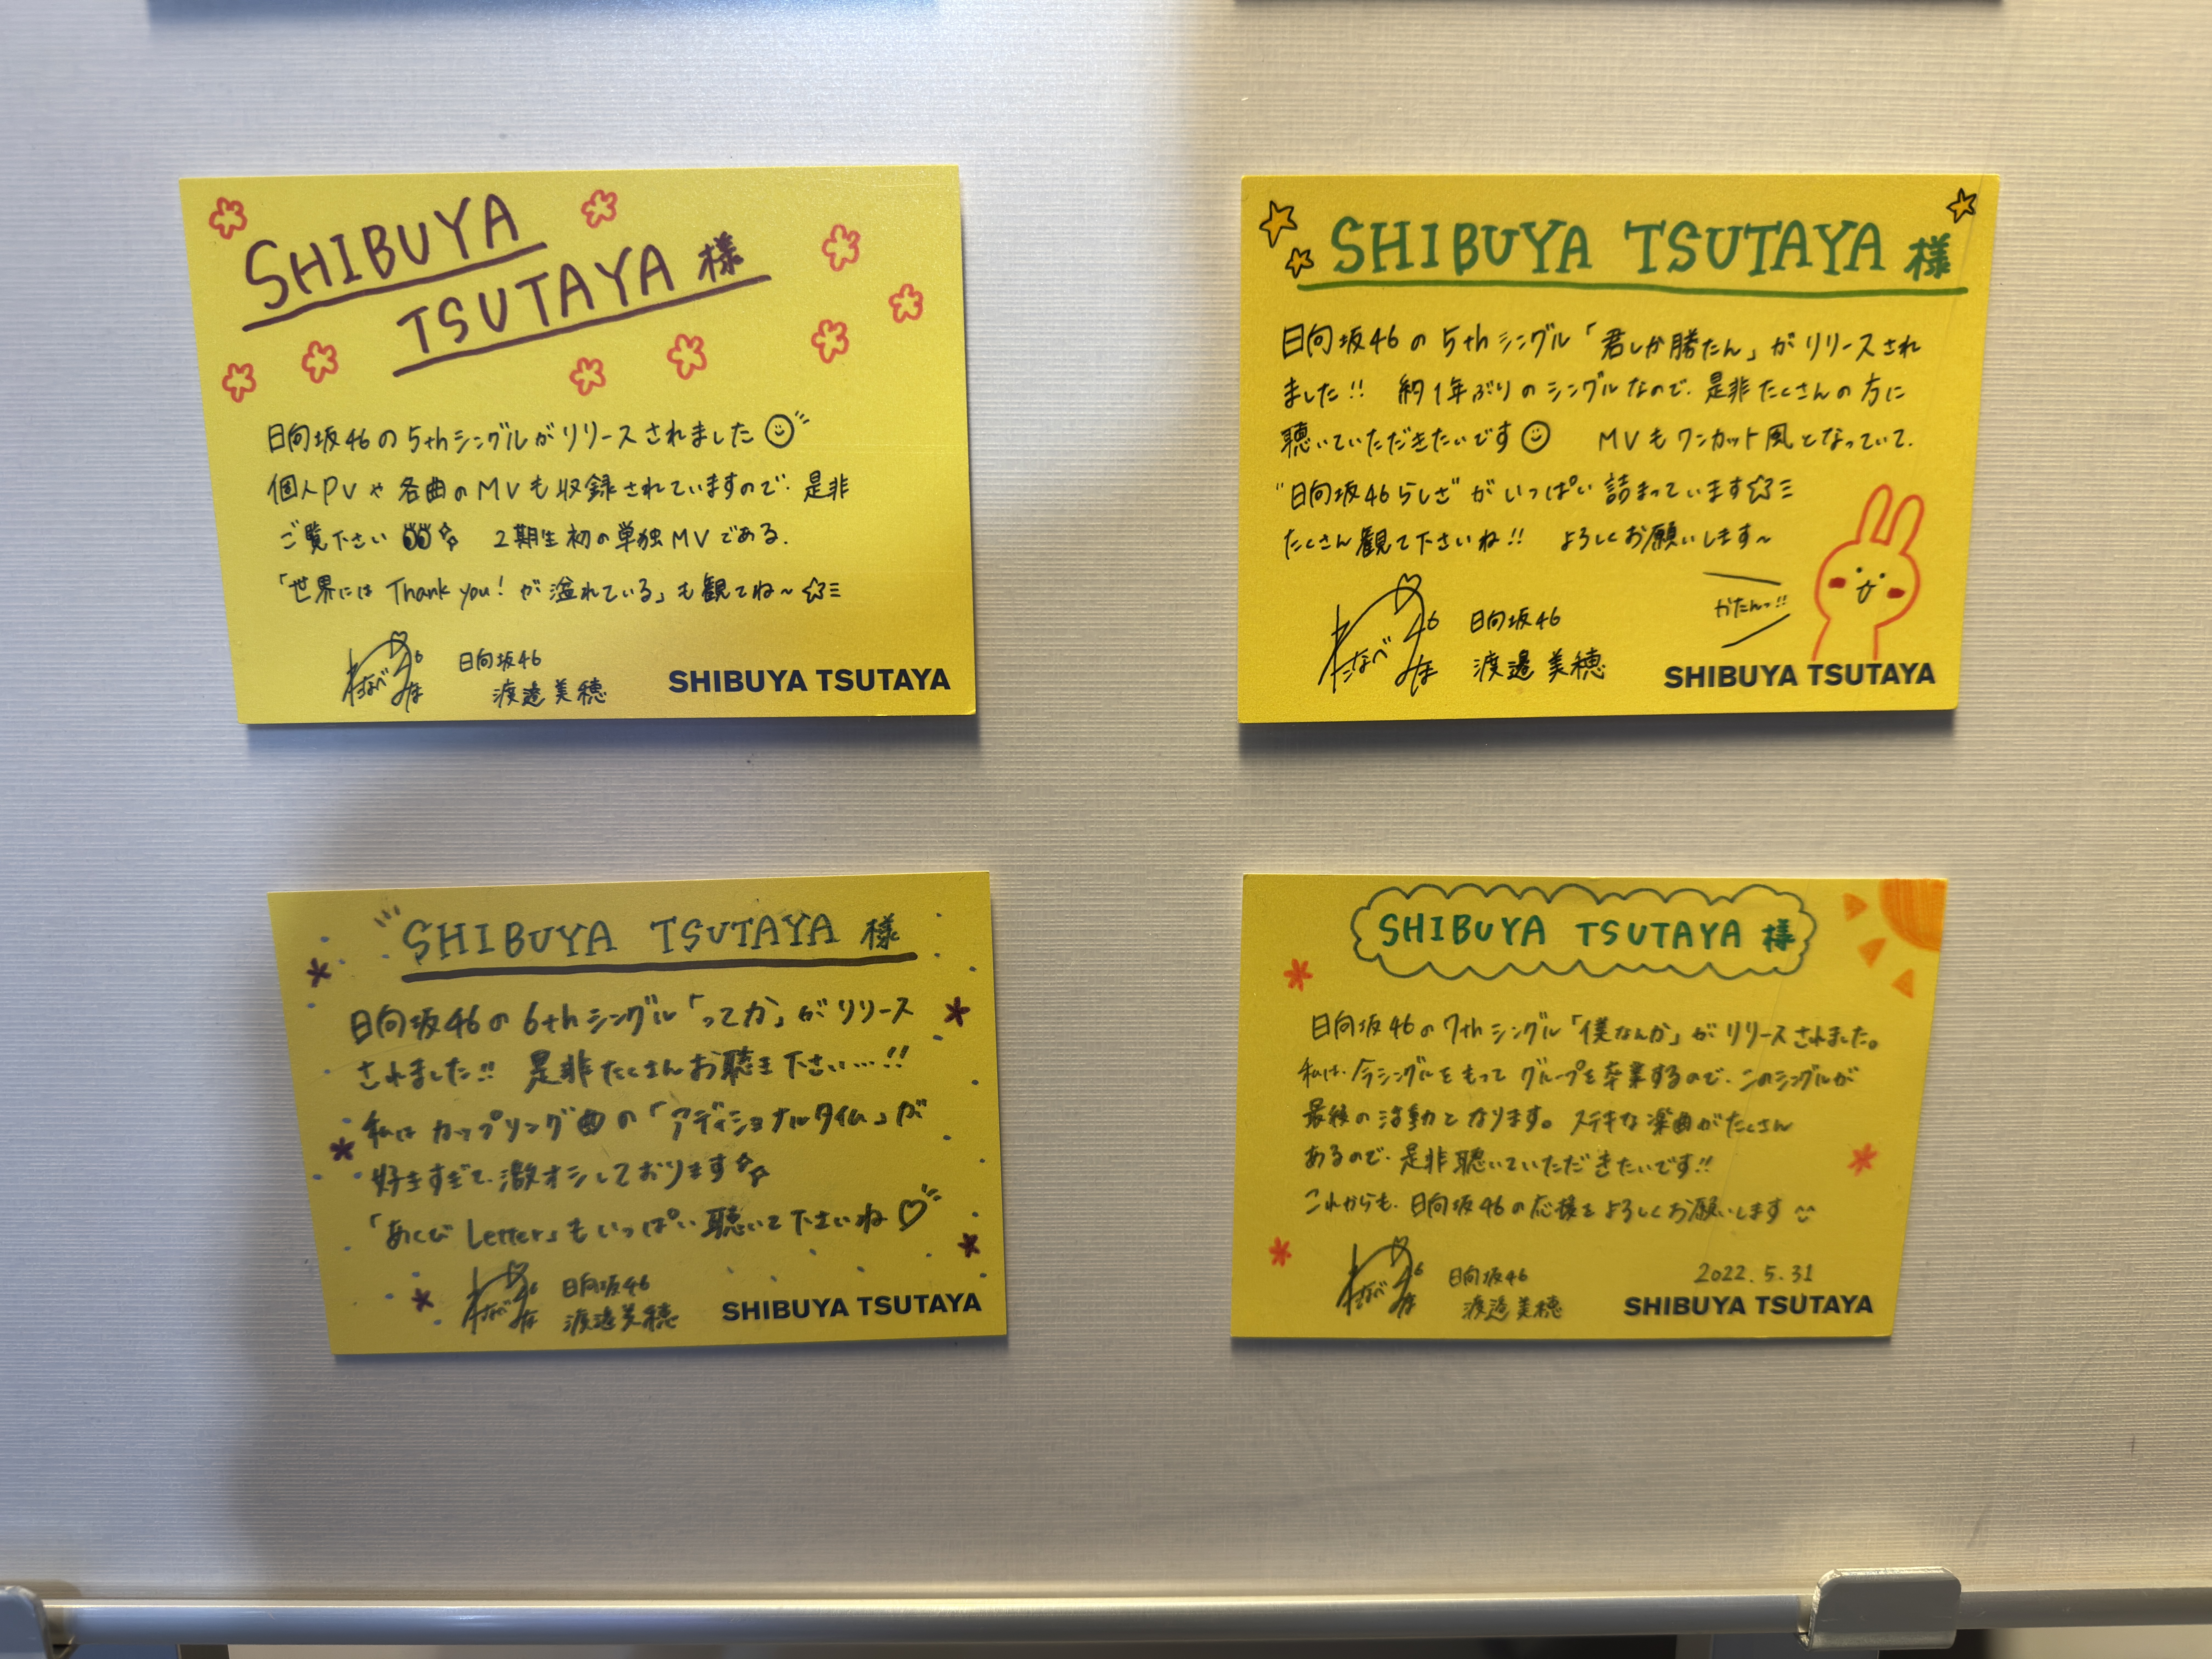 SHIBUYA
TSUTAYA 様
日向坂46の5thシングルがリリースされました
個人PVや各曲のMVも収録されていますので、是非
ご覧下さい 2期生初の単独MVである、
「世界には Thank you! が溢れている」も観てね~
わたなべみほ46
日向坂46
渡邉美穂
SHIBUYA TSUTAYA
SHIBUYA TSUTAYA 様
日向坂46の5thシングル「君しか勝たん」がリリースされ
ました!! 約1年ぶりのシングルなので、是非たくさんの方に
聴いていただきたいです MVもワンカット風となっていて、
"日向坂46らしさ"がいっぱい詰まっています
たくさん観て下さいね!! よろしくお願いします~
かたんっ!!
わたなべみほ46
日向坂46
渡邉美穂
SHIBUYA TSUTAYA
SHIBUYA TSUTAYA 様
日向坂46の6thシングル「ってか」がリリース
されました!! 是非たくさんお聴き下さい…!!
私はカップリング曲の「アディショナルタイム」が
好きすぎて、激オシしております
「あくび Letter」もいっぱい聴いて下さいね
わたなべみほ46
日向坂46
渡邉美穂
SHIBUYA TSUTAYA
SHIBUYA TSUTAYA 様
日向坂46の7thシングル「僕なんか」がリリースされました。
私は、今シングルをもってグループを卒業するので、このシングルが
最後の活動となります。ステキな楽曲がたくさん
あるので、是非聴いていただきたいです!!
これからも、日向坂46の応援をよろしくお願いします
わたなべみほ46
日向坂46
渡邉美穂
2022.5.31
SHIBUYA TSUTAYA